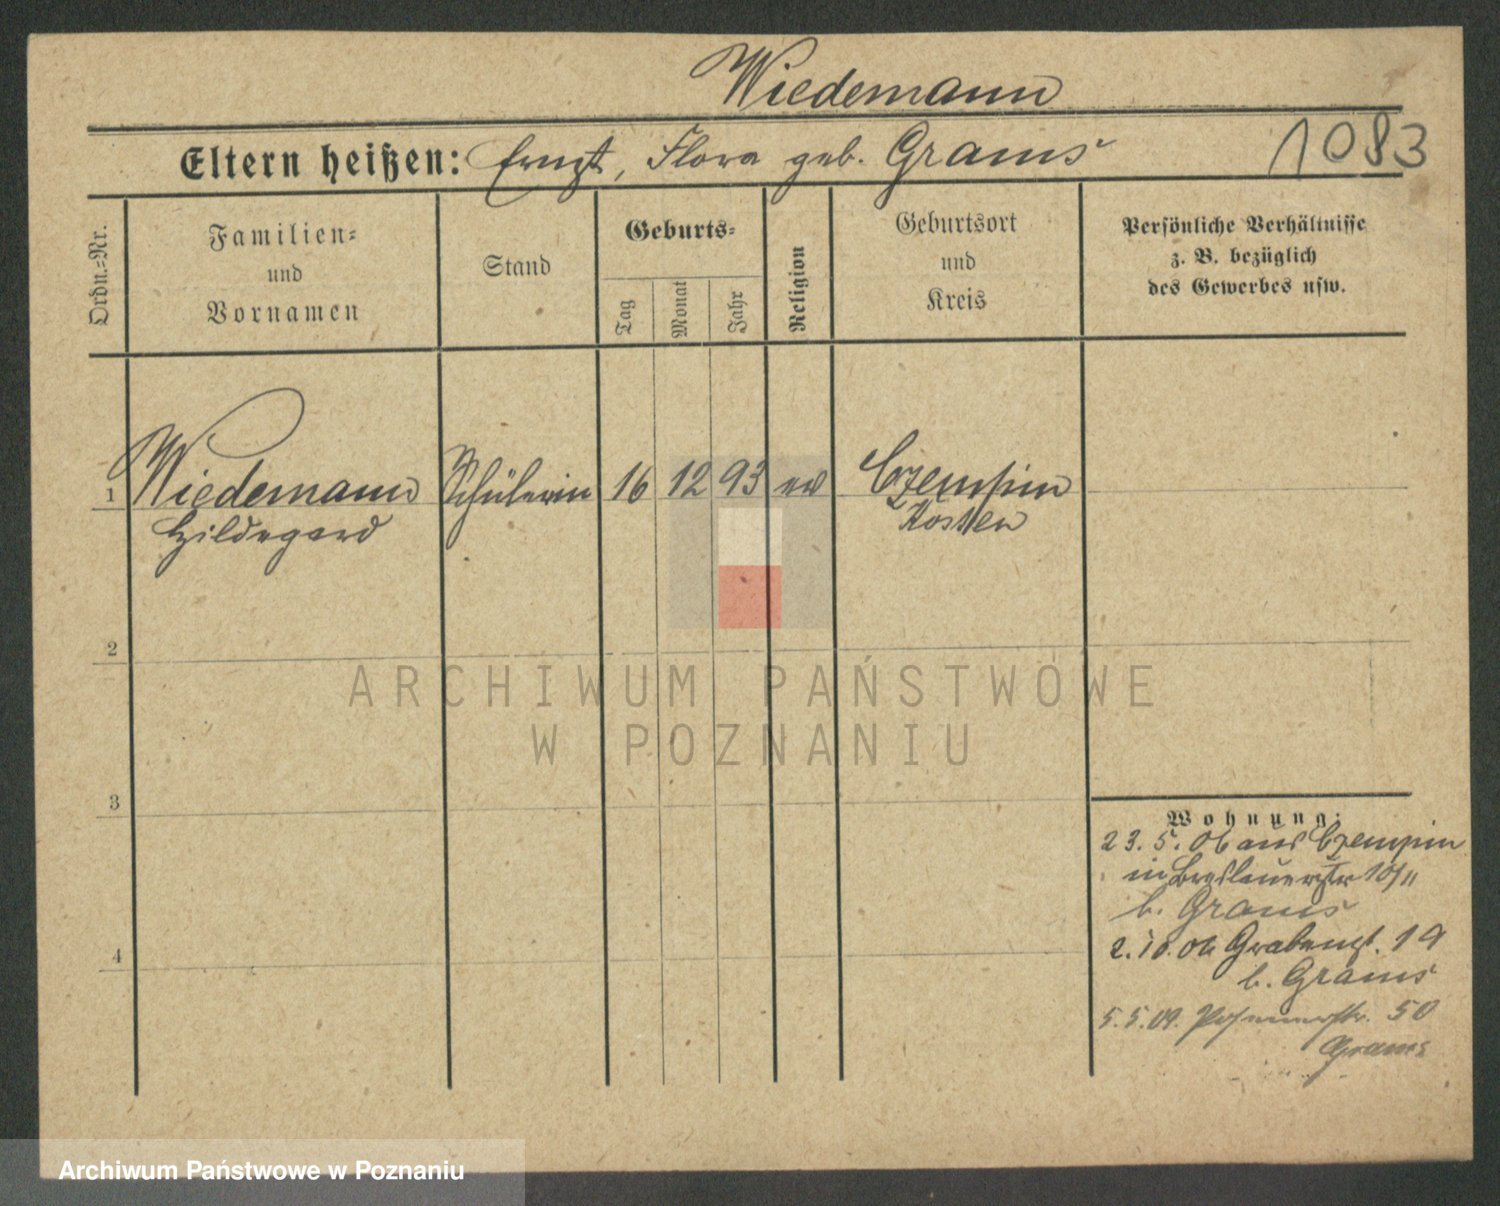 Wiedemann
Eltern heißen: Ernst, Flora geb. Grams
1083
Ordn.-Nr.
Familien-
und
Vornamen
Stand
Geburts-
Tag
Monat
Jahr
Religion
Geburtsort
und
Kreis
Persönliche Verhältnisse
z. B. bezüglich
des Gewerbes usw.
1 Wiedemann Schülerin 16 12 93 ev Czempin
Hildegard Kosten
2
3
4
ARCHIWUM PAŃSTWOWE
W POZNANIU
Wohnung:
23. 5. 06 aus Czempin
in Breslauerstr 10/II
b. Grams
2. 10. 06 Grabenst. 19
b. Grams
5. 5. 09. Posenerstr. 50
Grams
Archiwum Państwowe w Poznaniu